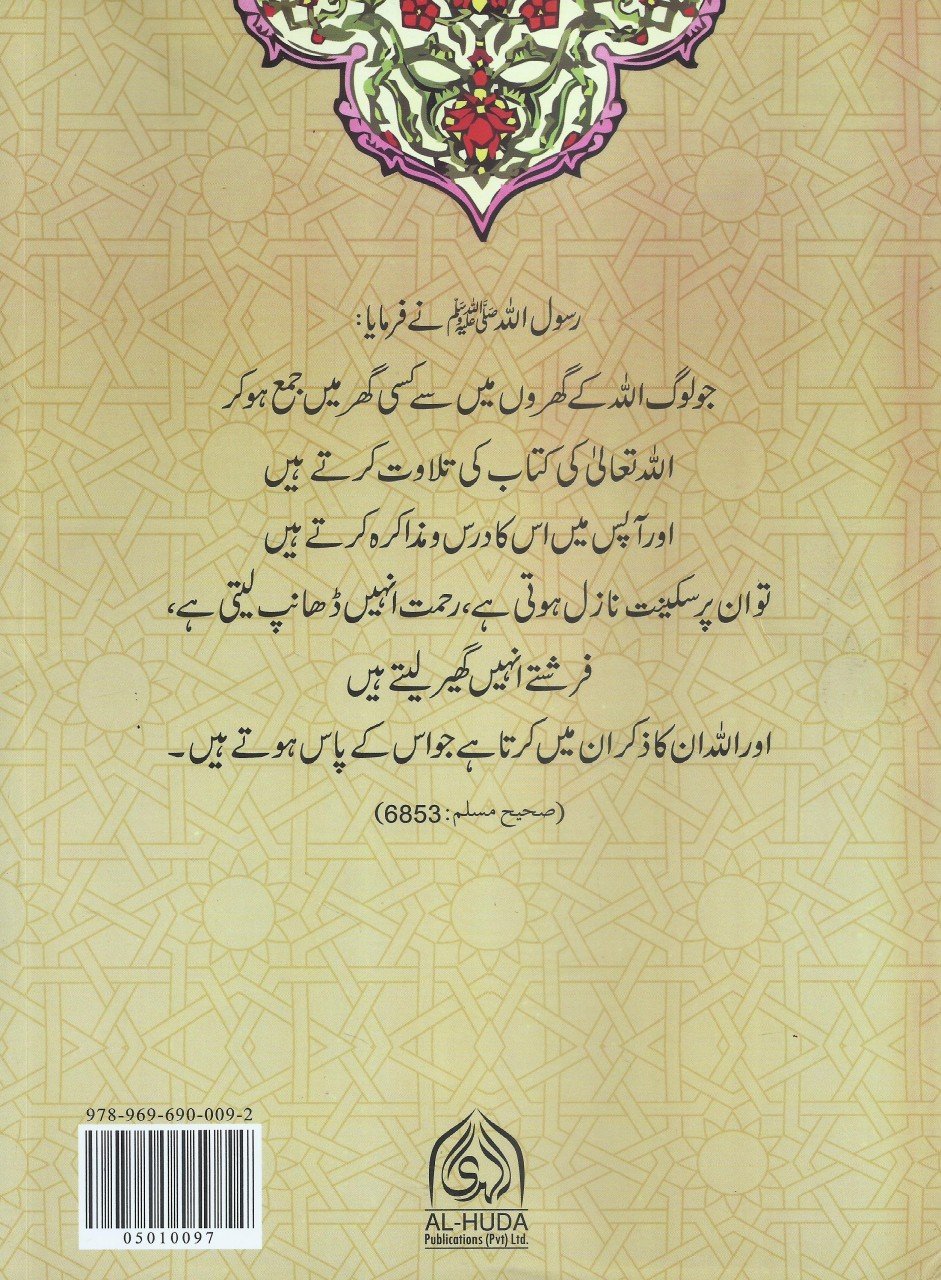 رسول اللہ ﷺ نے فرمایا:
جو لوگ اللہ کے گھروں میں سے کسی گھر میں جمع ہو کر
اللہ تعالیٰ کی کتاب کی تلاوت کرتے ہیں
اور آپس میں اس کا درس و مذاکرہ کرتے ہیں
تو ان پر سکینت نازل ہوتی ہے، رحمت انہیں ڈھانپ لیتی ہے،
فرشتے انہیں گھیر لیتے ہیں
اور اللہ ان کا ذکر ان میں کرتا ہے جو اس کے پاس ہوتے ہیں۔
(صحیح مسلم: 6853)
978-969-690-009-2
05010097
الهدى
AL-HUDA
Publications (Pvt) Ltd.